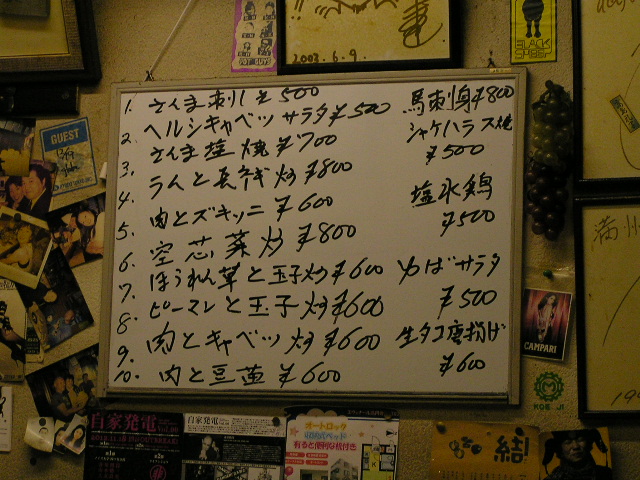 2003.6.9.
BLACK
GUEST
1. さんま刺し ¥500
2. ヘルシキャベツサラダ ¥500
3. さんま塩焼 ¥700
4. らんと長ネギ炒 ¥800
5. 肉とズキッニ ¥600
6. 空芯菜炒 ¥800
7. ほうれん草と玉子炒 ¥600
8. ピーマンと玉子炒 ¥600
9. 肉とキャベツ炒 ¥600
10. 肉と豆苗 ¥600
馬刺身 ¥800
シャケハラス焼
¥500
塩水鶏
¥500
ゆばサラダ
¥500
生タコ唐揚げ
¥600
CAMPARI
満州
自家発電
自家発電
オートロック